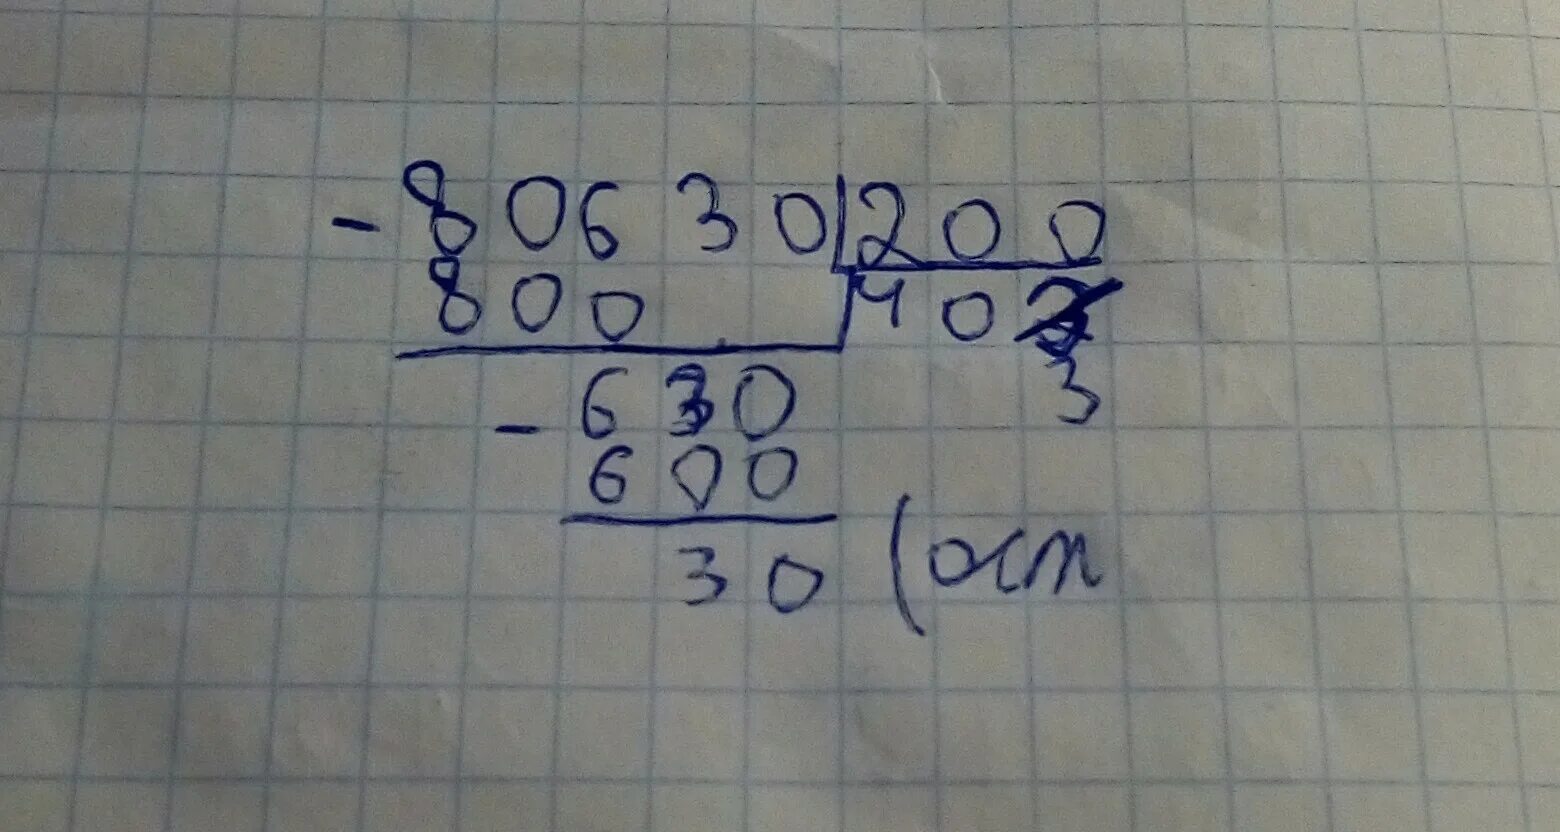 - 80630 200
800 403
- 630
600
30 (ост